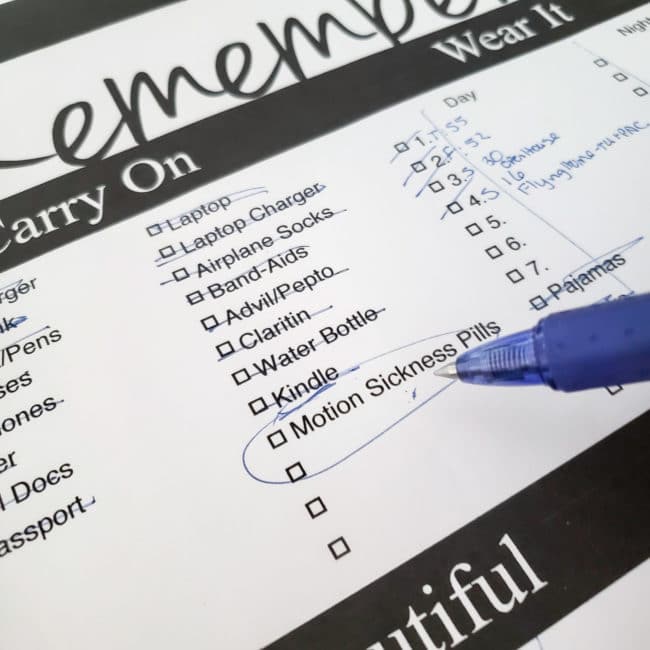 Remember
Wear It
Carry On
Day
Night
1. T. 55
2. F. 52
3. S 30 Open House
4. S 16
5.
6.
7.
Pajamas
Laptop
Laptop Charger
Airplane Socks
Band-Aids
Advil/Pepto
Claritin
Water Bottle
Kindle
Motion Sickness Pills
rger
/Pens
ses
ones
er
l Docs
assport
utiful